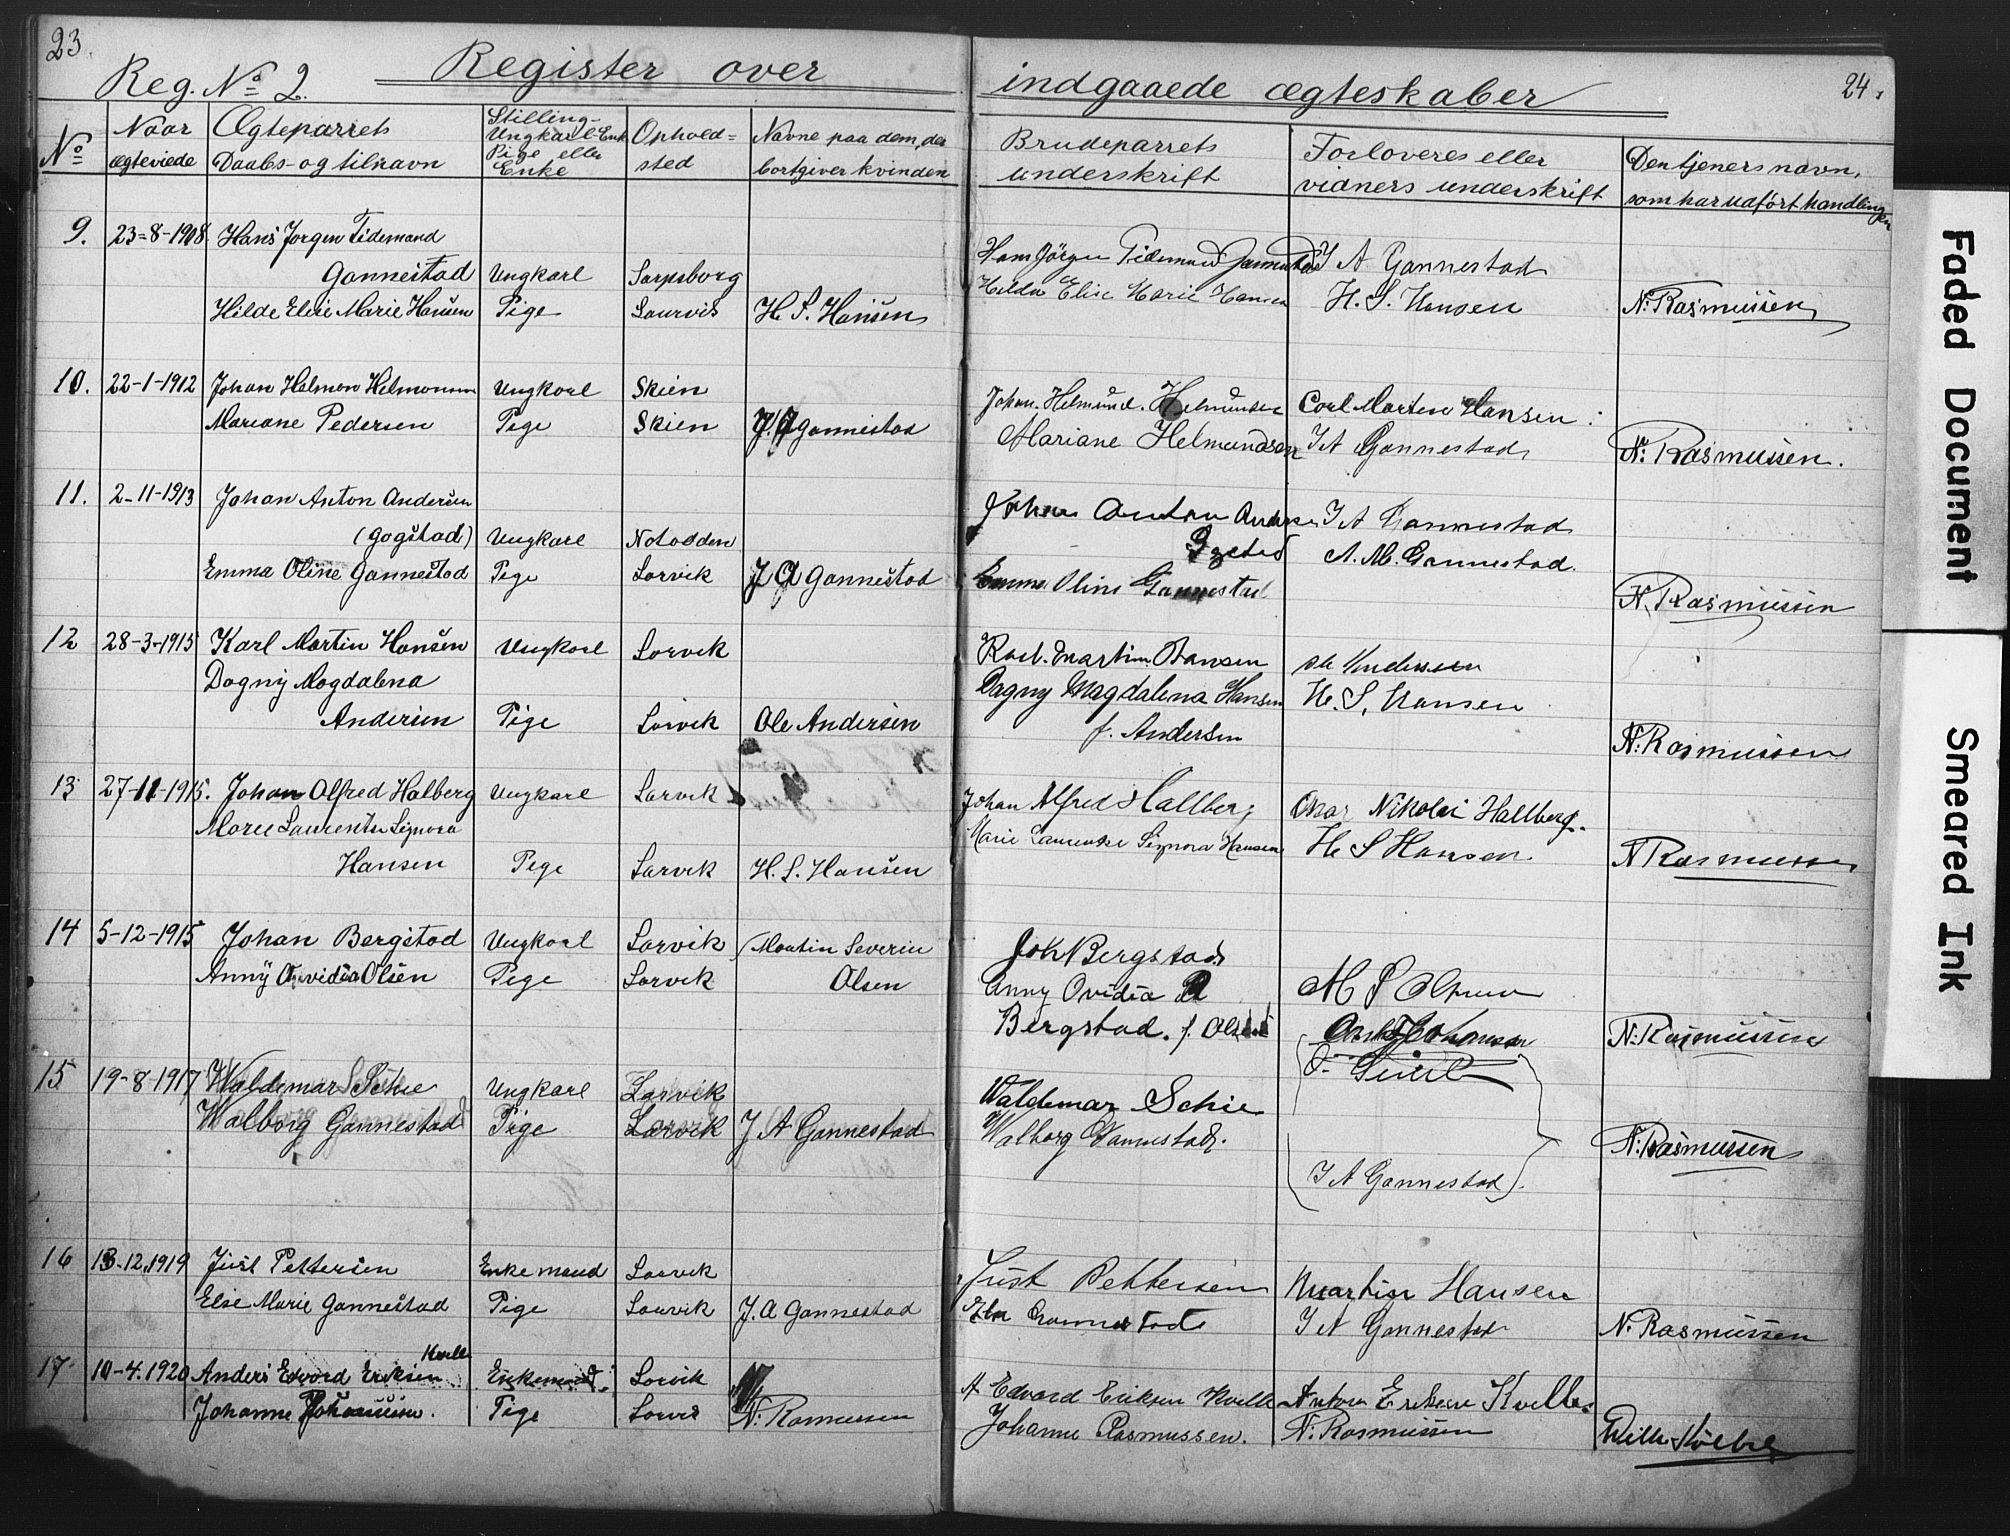 23.
Reg. No 2. Register over
No
Naar ægteviede
Ægteparrets Daabs- og tilnavn
Stilling- Ungkarl-Enk Pige eller Enke
Ophold= sted
Navne paa dem, der bortgiver kvinden
9. 23-8-1908 Hans Jorgen Tidemand
Gannestad Ungkarl Sarpsborg
Hilde Elise Marie Hansen Pige Laurvis H. S. Hansen
10. 22-1-1912 Johan Helmon Ungkarl Skien
Mariane Pedersen Pige Skien J. A Gannestad
11. 2-11-1913 Johan Anton Andersen
(Gogstad) Ungkarl Notodden
Emma Oline Gannestad Pige Larvik J A Gannestad
12 28-3-1915 Karl Martin Hansen Ungkarl Larvik
Dagny Magdalena
Andersen Pige Larvik Ole Andersen
13 27-11-1915. Johan Alfred Halberg Ungkarl Larvik
Marie Laurentse Signora
Hansen Pige Larvik H. S. Hansen
14 5-12-1915 Johan Bergstad Ungkarl Larvik Martin Severin
Anny Ovidia Olsen Pige Larvik Olsen
15 19-8-1917 Waldemar Schie Ungkarl Larvik
Walborg Gannestad Pige Larvik J A Gannestad
16 13-12.1919 Just Pettersen Enkemand Larvik
Else Marie Gannestad Pige Laurvik J. A Gannestad
Kvelle
17 10-4.1920 Anders Edvard Eriksen Enkemand Larvik
Johanne Pige Larvik N. Rasmussen
24.
indgaaede ægteskaber
Brudeparrets underskrift
Forloveres eller vidners underskrift
Den tjeners navn, som har udført handlingen
Hans Jörgen Tidemand Gannestad J A Gannestad
Hilda Elise Marie Hansen H. S. Hansen N. Rasmussen
Johan. Helmund. Helmundsen Carl Marten Hansen
Mariane Helmundsen J A Gannestad N. Rasmussen.
Johan Anton Andersen J A Gannestad
Gogstad A. M. Gannestad.
Emma Oline Gannestad N. Rasmussen
Karl. Martin. Hansen Ole Andersen
Dagny Magdalena Hansen H. S. Hansen
f. Andersen N. Rasmussen
Johan Alfred Hallberg Nikolai Hallberg.
Marie Laurentse Signora Hansen H S Hansen N Rasmussen
Joh Bergstad
Anny Ovidia M S Olsen
Bergstad. f. Olsen N. Rasmussen
Waldemar Schie
Walborg Gannestad. N. Rasmussen
(J A Gannestad).
Just Pettersen Martin Hansen
Gannestad J A Gannestad N. Rasmussen
A Edvard Eriksen Kvelle Anton Eriksen Kvelle.
Johanne Rasmussen. N. Rasmussen
Faded Document
Smeared Ink